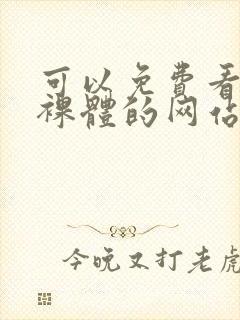 可以免費看
裸體的网估
今晚又打老虎